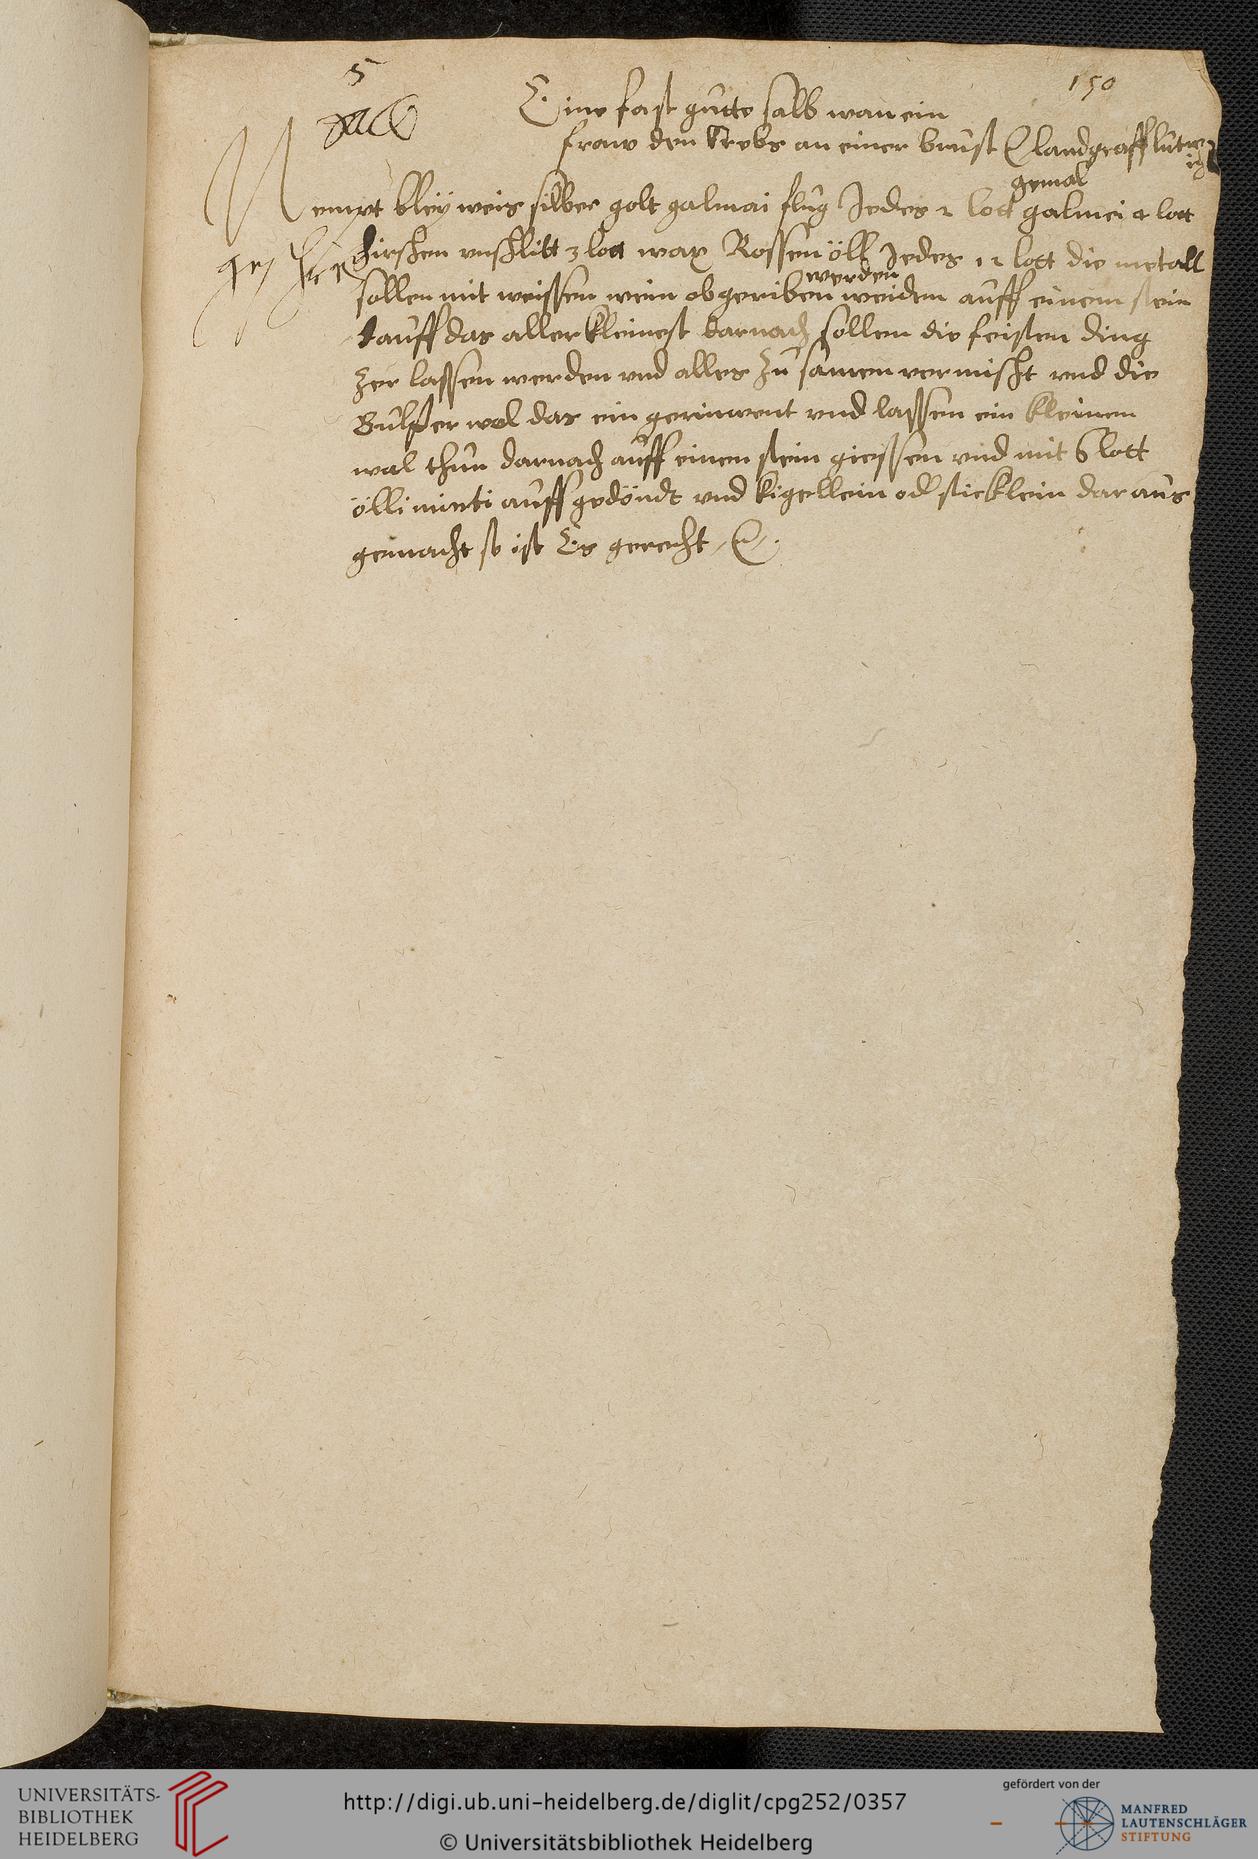 5
150
Eine fast gutte salb wan ein
fraw den krebs an einer brust landgraff lutwig
gemal
Nempt bleÿ weis silber golt galmai flug Jedes 2 lott galmei 4 lott
hirschen vnschlitt 3 lott wax Rossen öll Jedes 12 lott die metall
werden
sollen mit weissen wein obgeriben weiden auff einem stein
auff das aller kleinest darnach sollen die feisten ding
Zer lassen werden vnd alles zu samen vermischt vnd die
Bulffer wol das ein gerinnent vnd lassen ein kleinen
wal thun darnach auff einen stein giessen vnd mit 6 lott
ölli minti auff gedöndt vnd kigellein od sticklein dar aus
gemacht so ist Es gerecht
UNIVERSITÄTS-
BIBLIOTHEK
HEIDELBERG
http://digi.ub.uni-heidelberg.de/diglit/cpg252/0357
© Universitätsbibliothek Heidelberg
gefördert von der
MANFRED
LAUTENSCHLÄGER
STIFTUNG